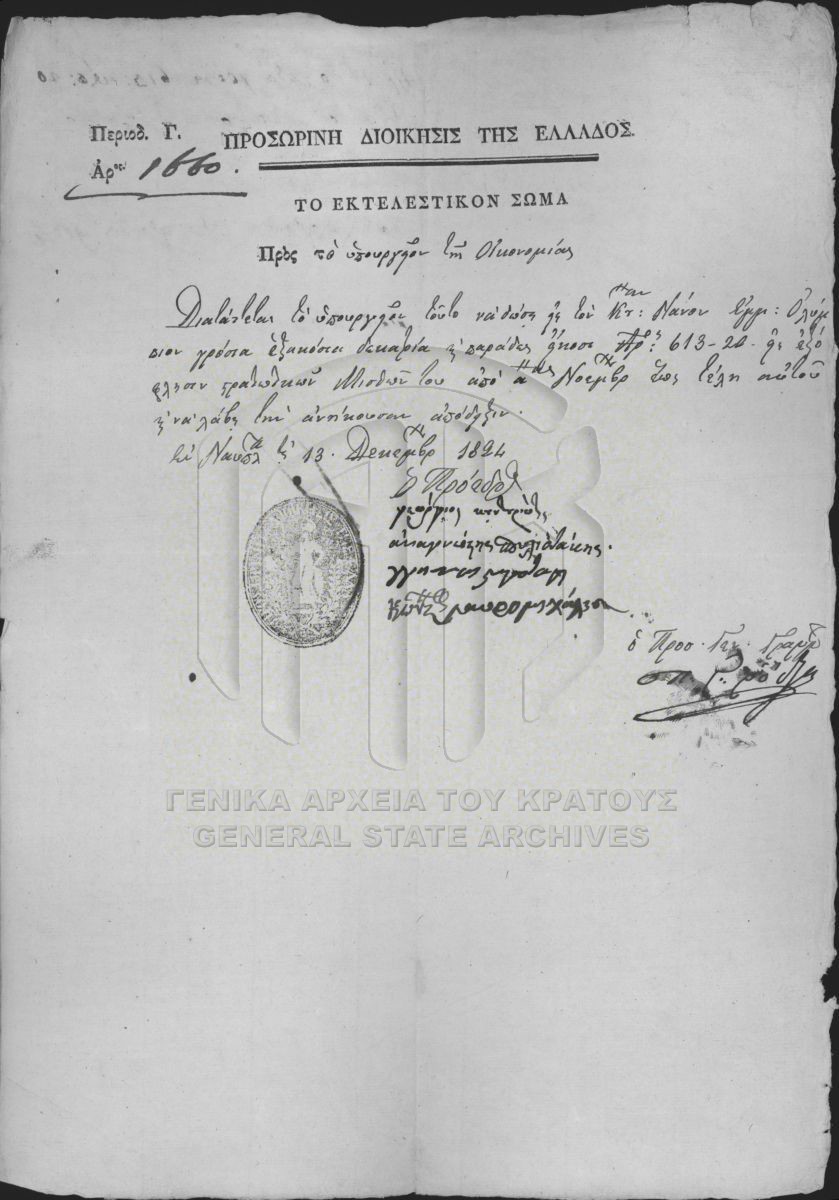 Περιοδ. Γ. ΠΡΟΣΩΡΙΝΗ ΔΙΟΙΚΗΣΙΣ ΤΗΣ ΕΛΛΑΔΟΣ.
Ἀρος 1660.
ΤΟ ΕΚΤΕΛΕΣΤΙΚΟΝ ΣΩΜΑ
Πρὸς τὸ ὑπουργεῖον τῆς Οἰκονομίας
Διατάττεται τὸ ὑπουργεῖον τοῦτο νὰ δώσῃ εἰς τὸν Νάνον Ὀλύμ
πιον γρόσια ἑξακόσια δεκατρία καὶ παράδες εἴκοσι 613-20 εἰς ἐξό
φλησιν μισθῶν του ἀπὸ α Νοεμβρ ἕως τέλη αὐτοῦ
καὶ νὰ λάβῃ τὴν ἀνήκουσαν ἀπόδειξιν.
Ναυπλ 13 Δεκεμβρ 1824
ὁ Πρόεδρος
γεώργιος
αναγνώστης
μαυρομιχάλης
ὁ Προσ. Γεν. Γραμμ
ΓΕΝΙΚΑ ΑΡΧΕΙΑ ΤΟΥ ΚΡΑΤΟΥΣ
GENERAL STATE ARCHIVES